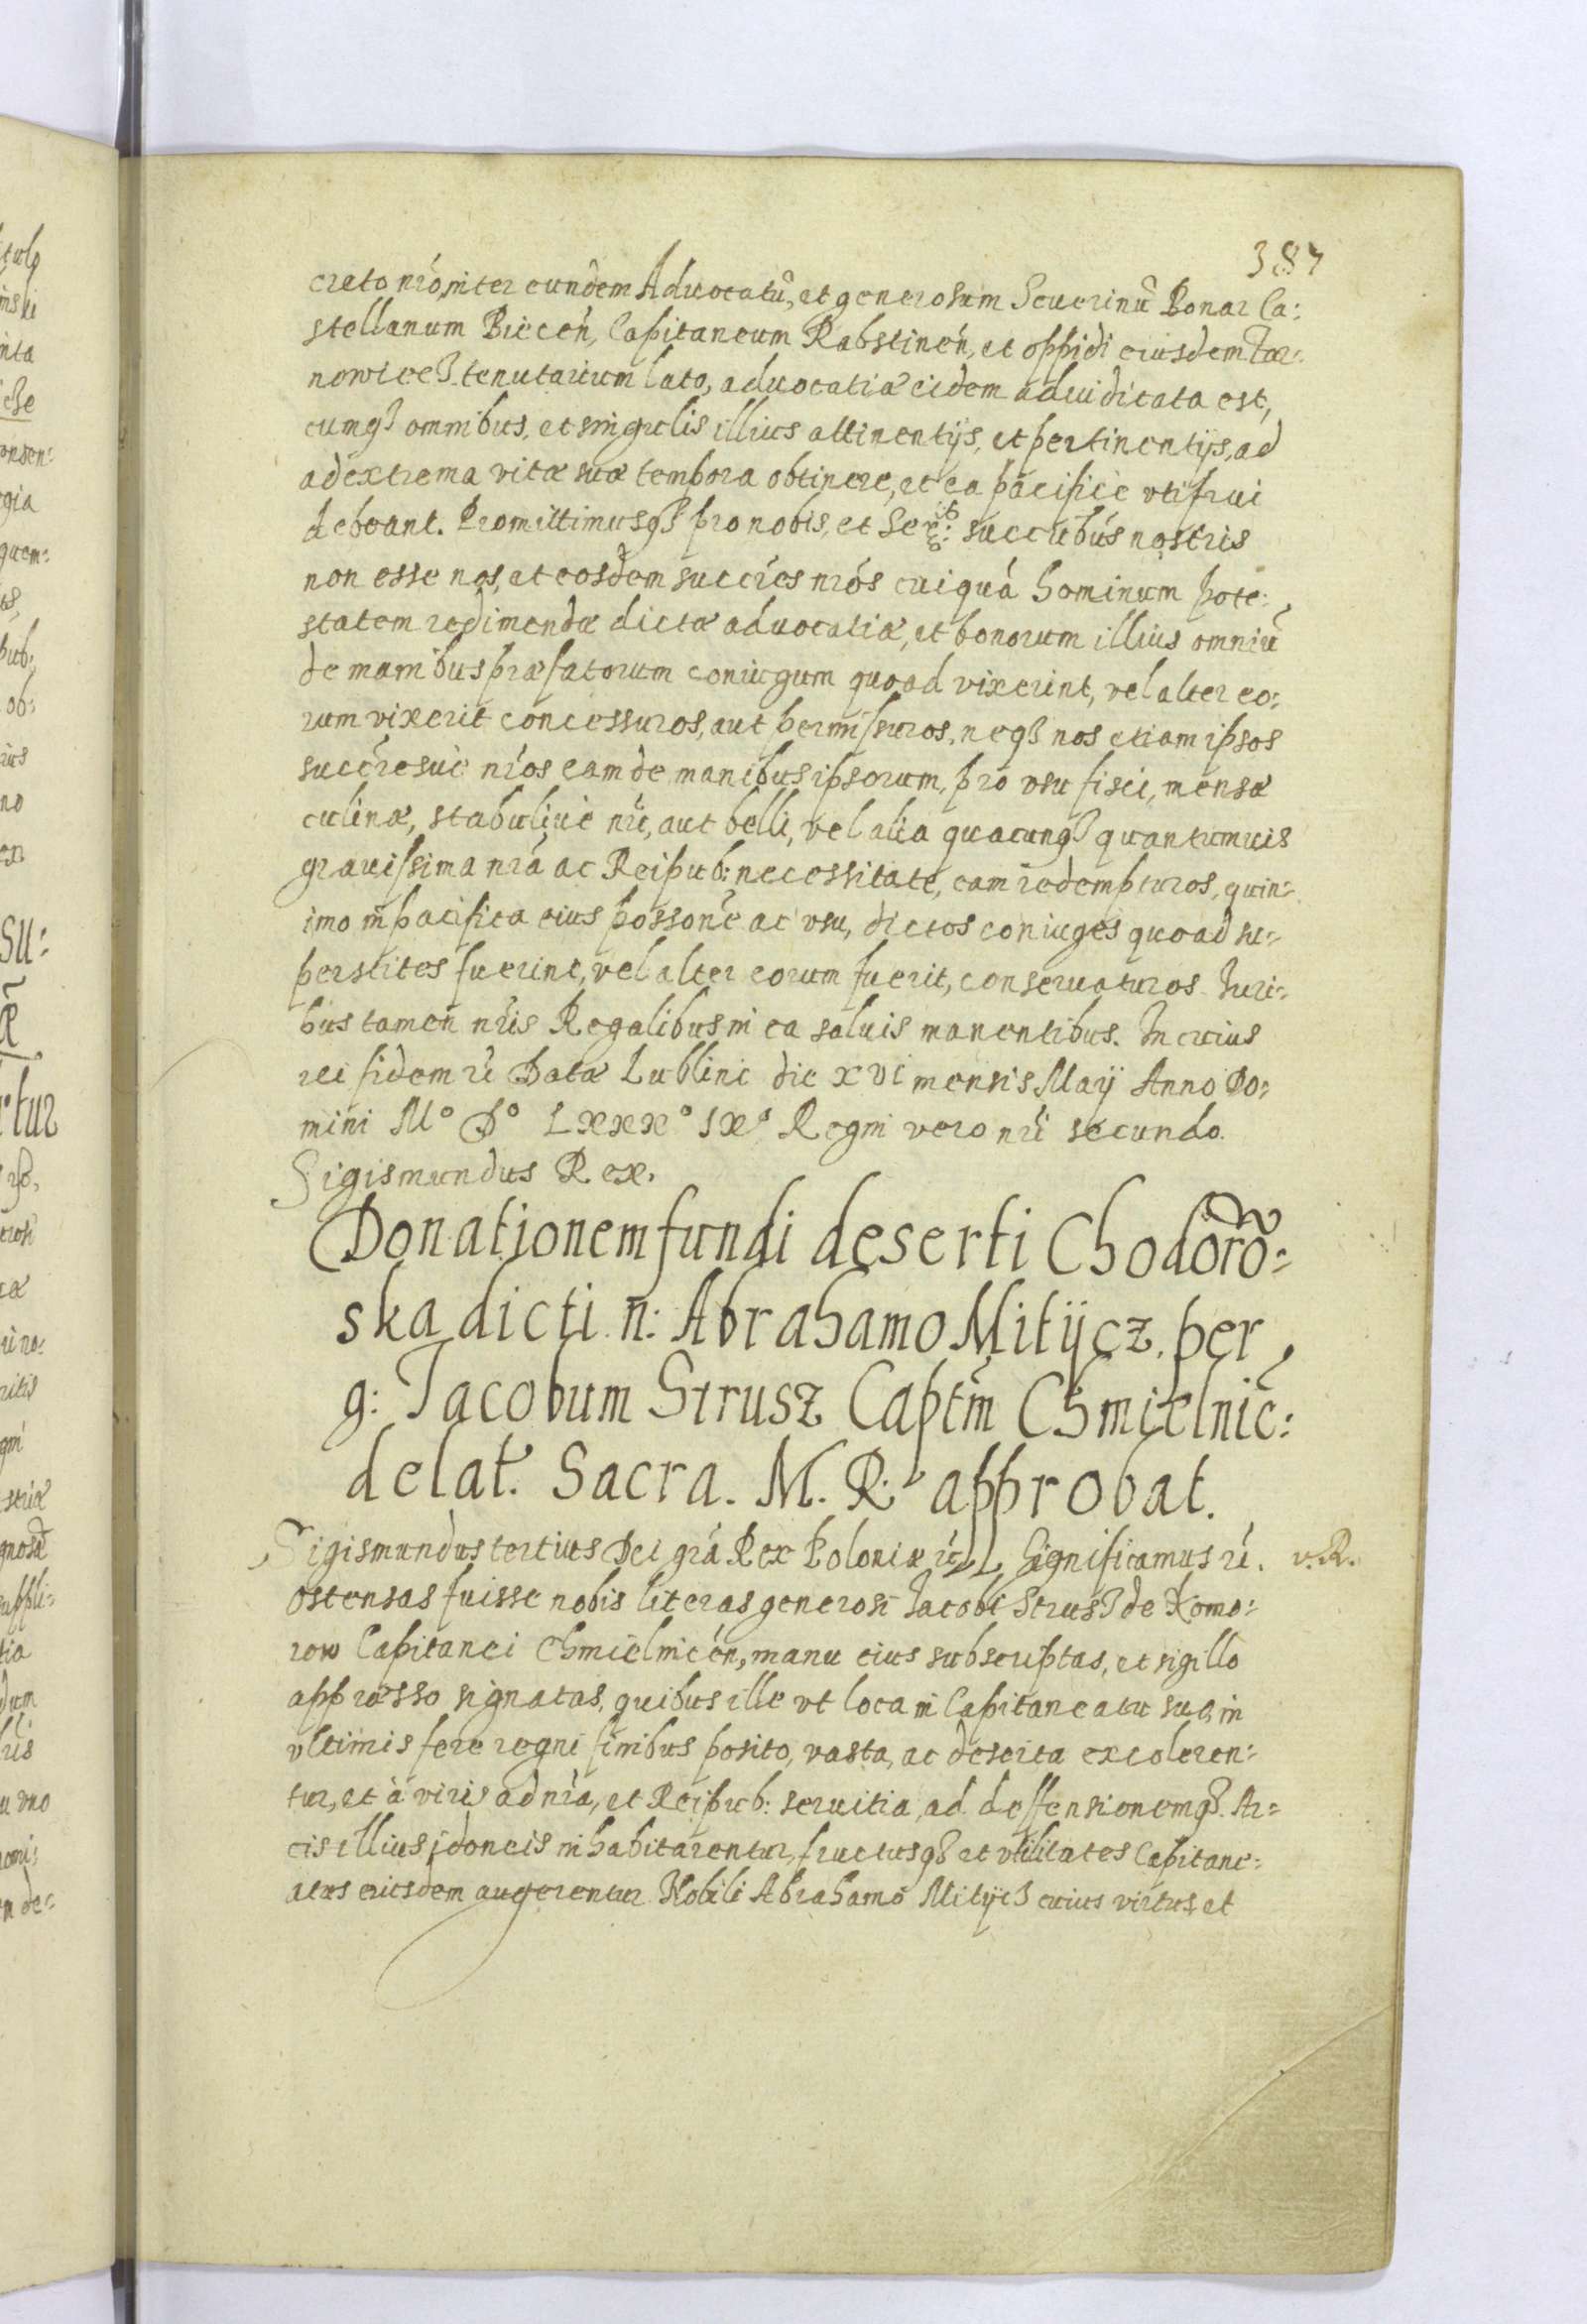 387
creto nro, inter eundem Aduocatū, et generosum Seuerinū Bonar Ca:
stellanum Biecen̄, Capitaneum Rabstinen̄, et oppidi eiusdem Tar:
nowiecz tenutarium lato, aduocatia eidem adiudicata est,
cumq₃ omnibus, et singulis illius attinentijs, et pertinentijs, ad
ad extrema vitæ suæ tempora obtinere, et ea pacificè vti frui
debeant. Promittimusq₃ pro nobis, et Ser: succribús nostris
non esse nos, et eosdem succr̄es nrós cuiquá hominum pote:
statem redimendæ dictæ aduocatiæ, et bonorum illius omniū
de manibus præfatorum coniugum quoad vixerint, vel alter eo:
rum vixerit concessuros, aut permissuros, neq₃ nos etiam ipsos
succr̄esuè nr̄os eam de manibus ipsorum, pro vsu fisci, mensæ
culinæ, stabuliuè nr̄i, aut belli, vel alia quacunq₃ quantumuis
grauissima nrá ac Reipub: necessitate, eam redempturos, quin:
imo in pacifica eius possone ac vsu, dictos coniuges quoad su:
perstites fuerint, vel alter eorum fuerit, conseruaturos. Iuri:
bus tamen nr̄is Regalibus in ea saluis manentibus. In cuius
rei fidem r̄i Data Lublini die XVI mensis Maij Anno Do:
mini Mº Dº LXXXº IXº Regni vero nr̄i secundo.
Sigismundus Rex.
Donationem fundi deserti Chodoro:
ska dicti n: Abrahamo Mitijcz, per
g: Jacobum Strusz Captm̄ Chmielnic̄:
delat. Sacra. M. R. approbat.
Sigismundus tertius Dei grá Rex Poloniæ r̄i Significamus r̄i. v. R.
ostensas fuisse nobis literas generosi Jacobi Strusz de Komo:
row Capitanei Chmielnicén, manu eius subscriptas, et sigillo
appræsso signatas, quibus ille vt loca in Capitaneatu suo, in
vltimis fere regni finibus posito, vasta, ac deserta excoleren:
tur, et à viris ad nrá, et Reipub: seruitia, ad deffensionemq₃ Ar:
cis illius idoneis inhabitarentur, fructusq₃ et vtilitates Capitane:
atus eiusdem augerentur Nobili Abrahamo Mitijcz cuius virtus et